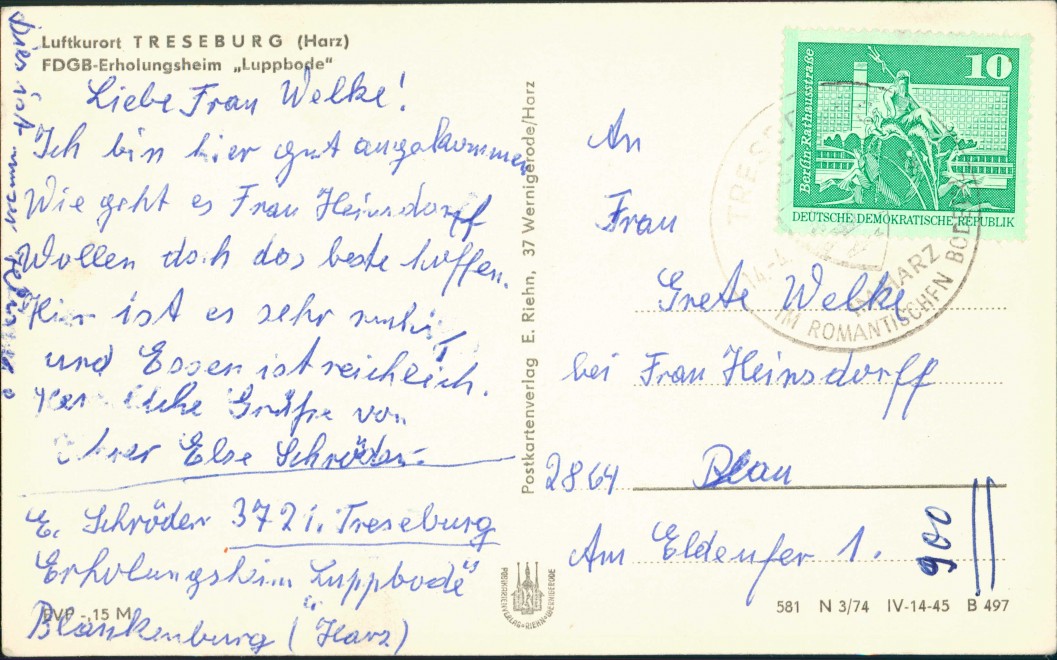 Luftkurort TRESEBURG (Harz)
FDGB-Erholungsheim „Luppbode"
Liebe Frau Welke!
Ich bin hier gut angekommen
Wie geht es Frau Heinsdorff
Wollen doch das beste hoffen.
Hier ist es sehr ruhig
und Essen ist reichlich.
Herzliche Grüße von
Ihrer Else Schröder.
E. Schröder 372 i. Treseburg
Erholungsheim Luppbode"
Blankenburg (Harz)
EVP -,15 M
hier ist
Postkartenverlag E. Riehn, 37 Wernigerode/Harz
POSTKARTENVERLAG•RIEHN•WERNIGERODE
10
Berlin Rathausstraße
DEUTSCHE DEMOKRATISCHE REPUBLIK
TRESEBURG
14.-4.
IM HARZ
IM ROMANTISCHEN BODETAL
An
Frau
Grete Welke
bei Frau Heinsdorff
2864 Plau
Am Eldenufer 1.
900
581 N 3/74 IV-14-45 B 497